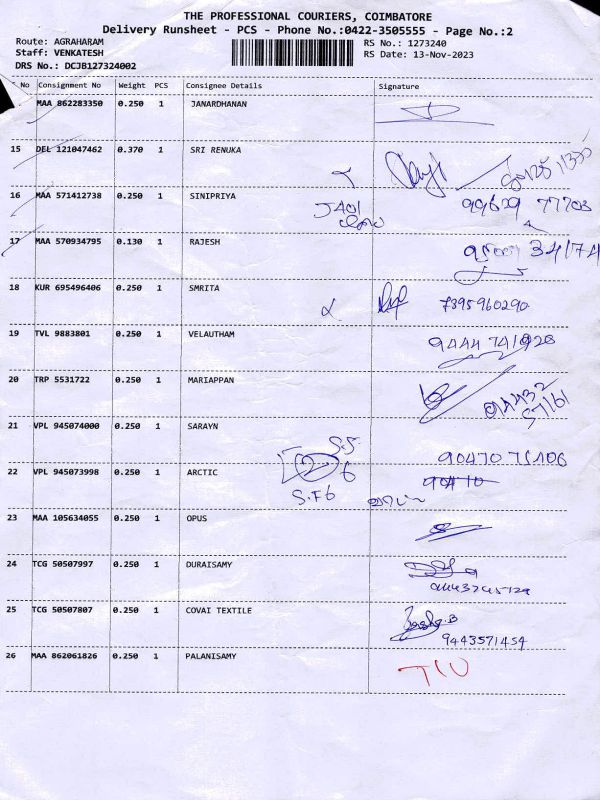 THE PROFESSIONAL COURIERS, COIMBATORE
Delivery Runsheet - PCS - Phone No.:0422-3505555 - Page No.:2
Route: AGRAHARAM RS No.: 1273240
Staff: VENKATESH RS Date: 13-Nov-2023
DRS No.: DCJB127324002
No Consignment No Weight PCS Consignee Details Signature
MAA 862283350 0.250 1 JANARDHANAN
15 DEL 121047462 0.370 1 SRI RENUKA
16 MAA 571412738 0.250 1 SINIPRIYA 99629 77703
17 MAA 570934795 0.130 1 RAJESH
18 KUR 695496406 0.250 1 SMRITA 7395960290
19 TVL 9883801 0.250 1 VELAUTHAM 9444 741928
20 TRP 5531722 0.250 1 MARIAPPAN
21 VPL 945074000 0.250 1 SARAYN
22 VPL 945073998 0.250 1 ARCTIC S.F6
23 MAA 105634055 0.250 1 OPUS
24 TCG 50507997 0.250 1 DURAISAMY
25 TCG 50507807 0.250 1 COVAI TEXTILE 9443571454
26 MAA 862061826 0.250 1 PALANISAMY